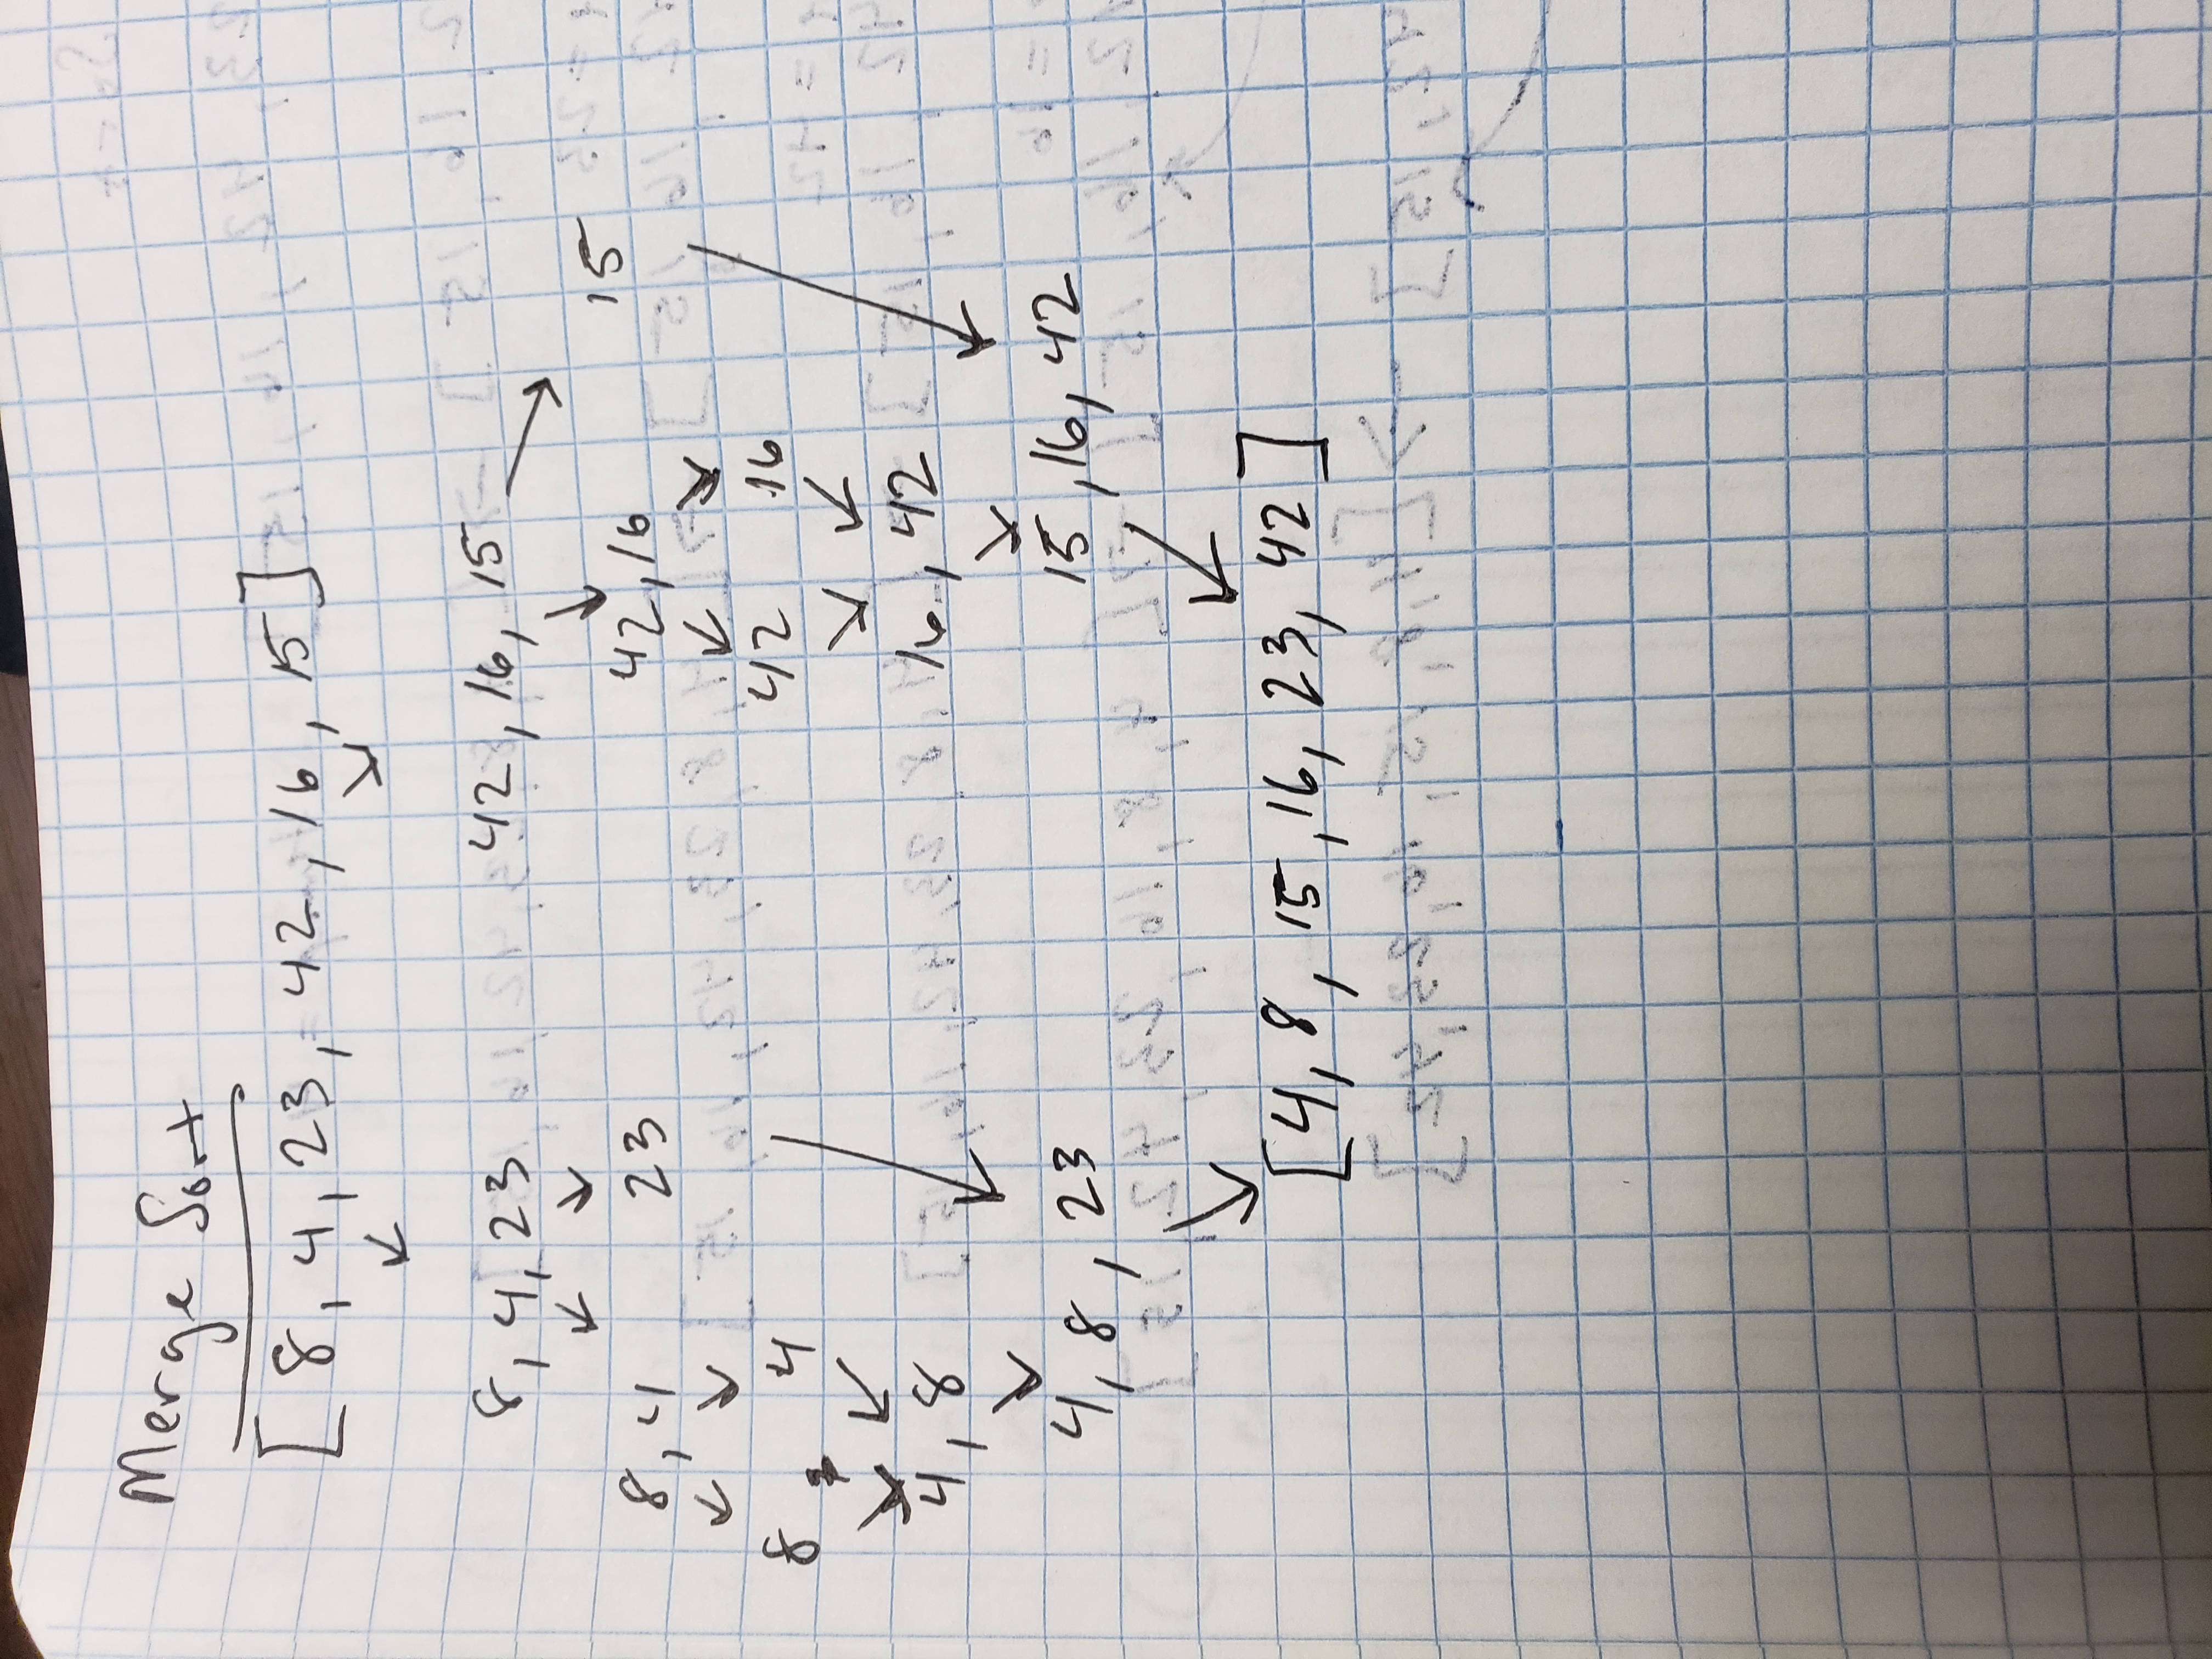 Merge Sort
[ 8, 4, 23, 42, 16, 15 ]
8, 4, 23 42, 16, 15
8, 4 23 42, 16 15
8 4 42 16
4, 8 16, 42
4, 8, 23 15, 16, 42
[ 4, 8, 15, 16, 23, 42 ]